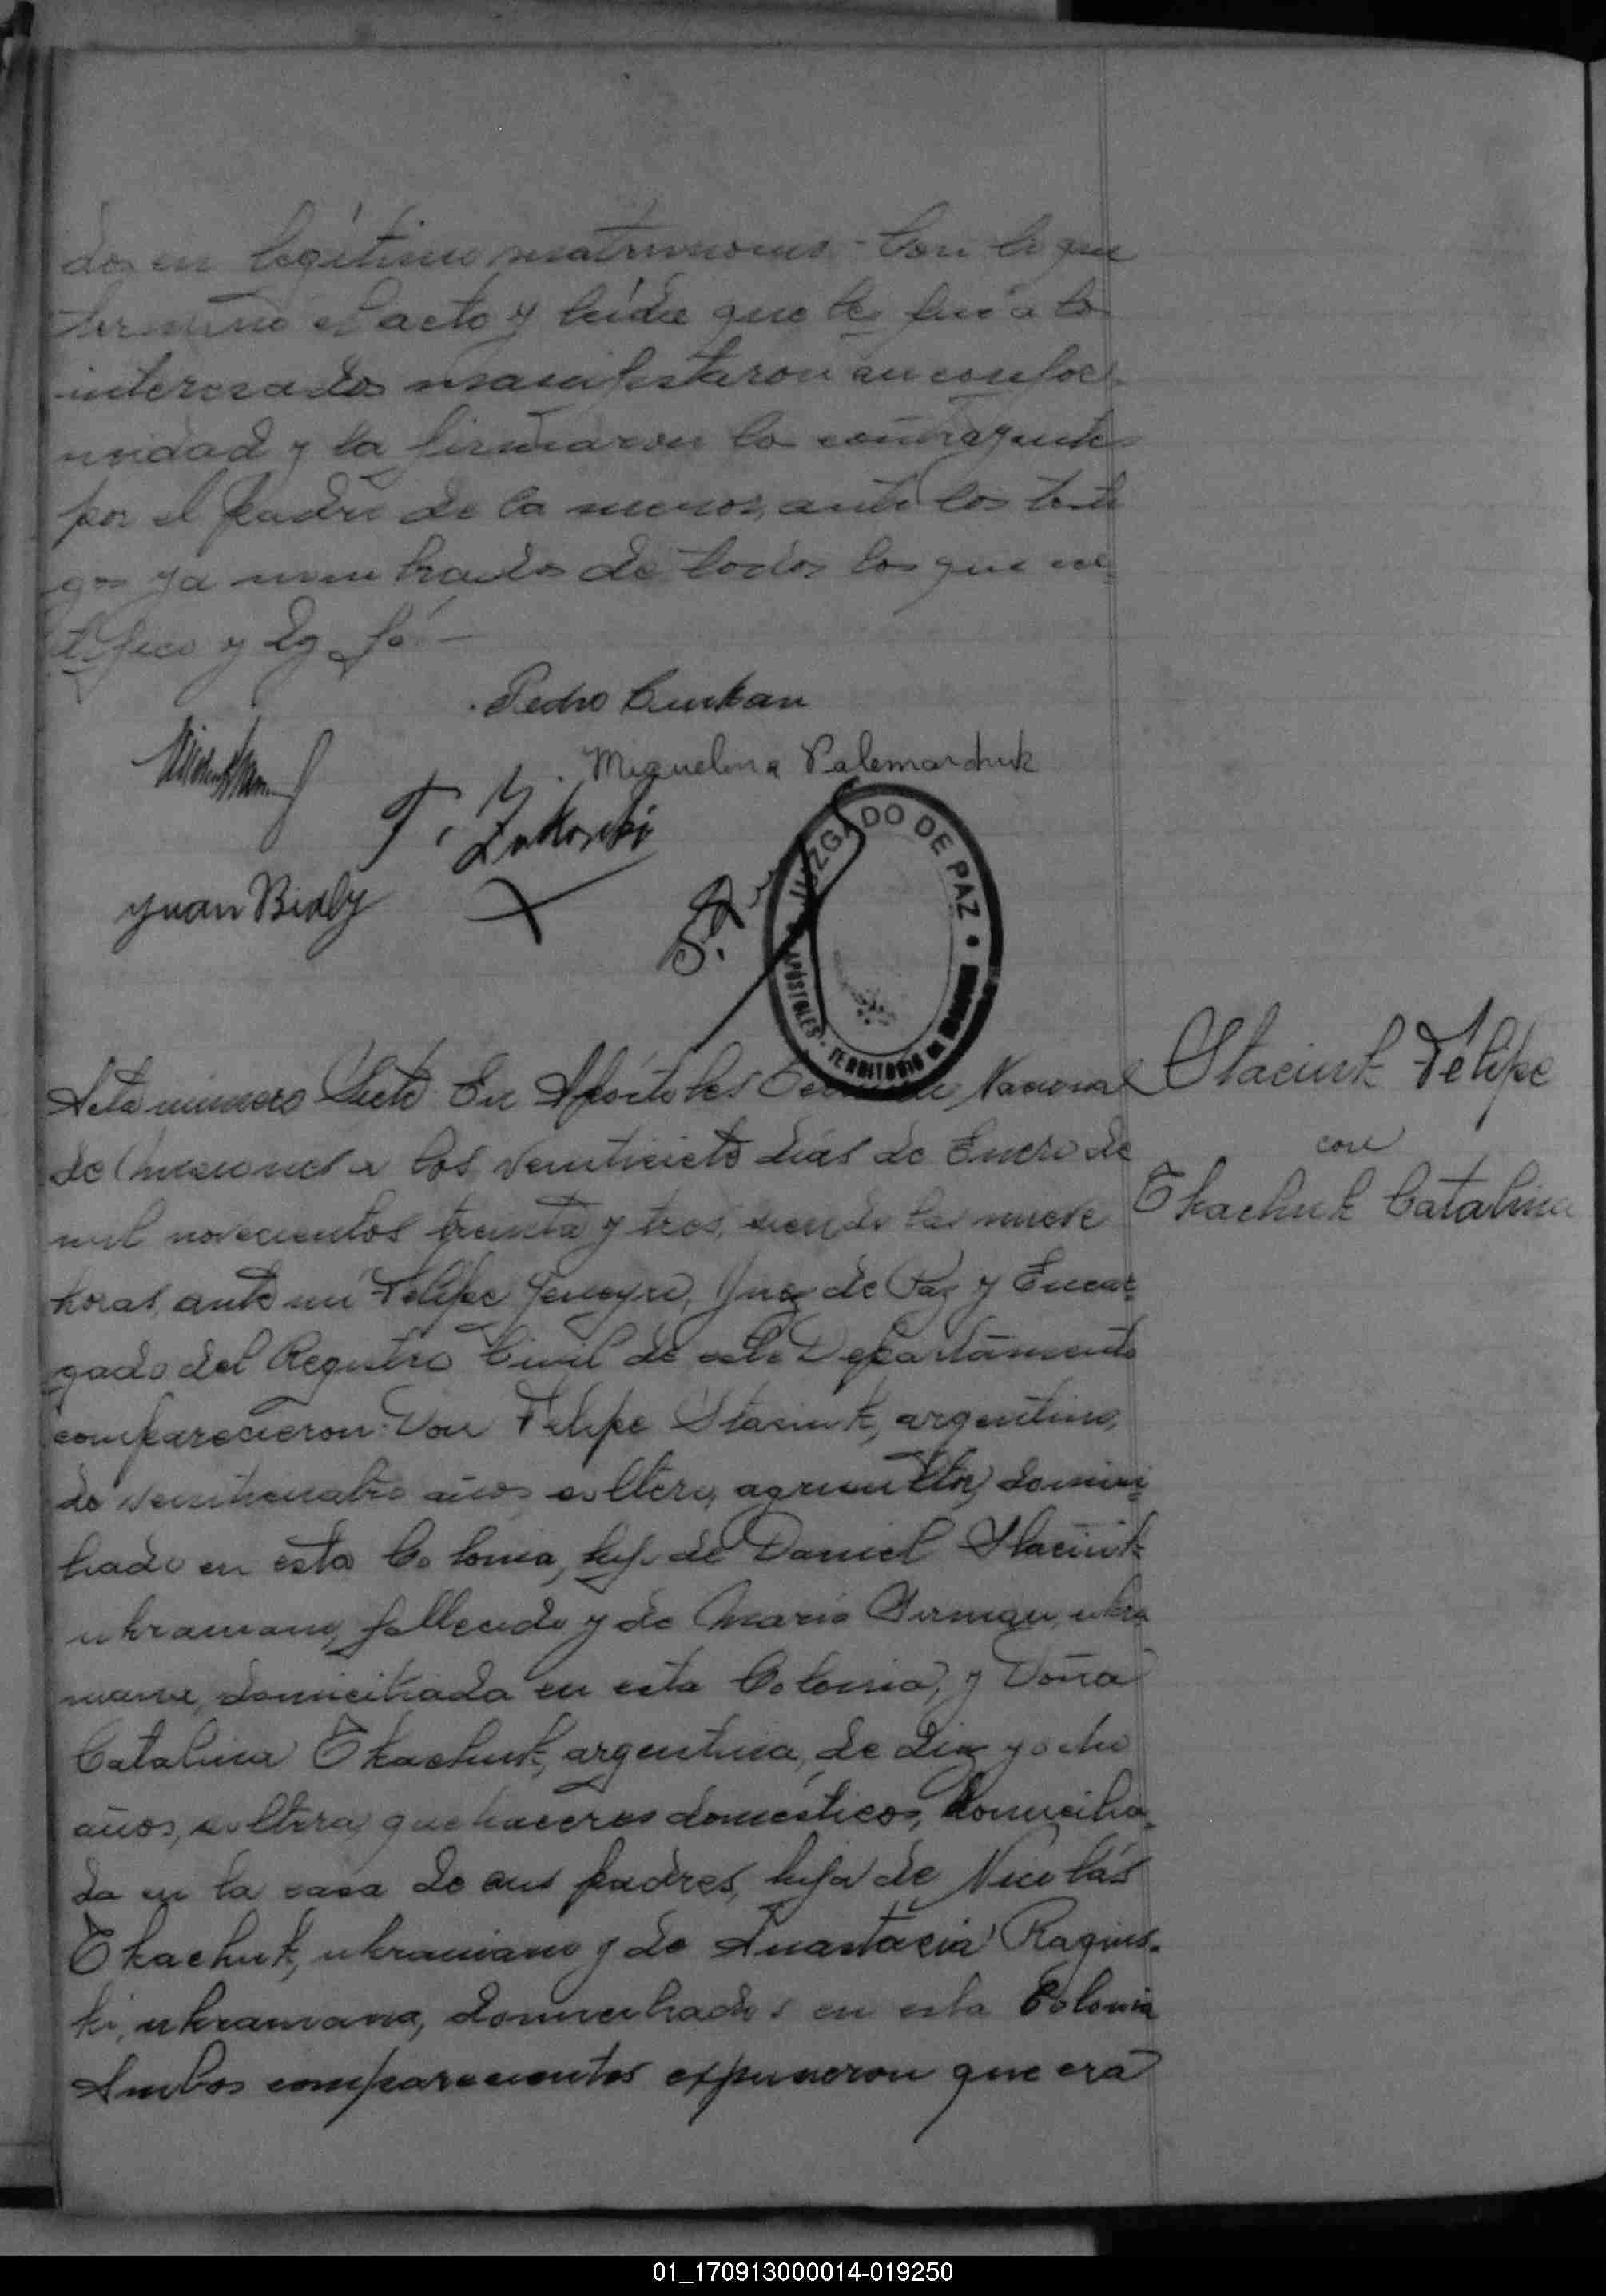 dos en legítimo matrimonio - Con lo que
terminó el acto y leída que les fué a los
interesados manifestaron su confor-
midad y la firmaron los contrayentes
por el padre de la menor, ante los testi
gos ya nombrados de todos los que cer
tifico y doy fé -
Pedro
Miguelina Palemarchuk
T. Zukoski
Juan Bialy
JUZGADO DE PAZ
APÓSTOLES - TERRITORIO DE
Acta número Siete. En Apóstoles Nacional
de Misiones a los veintisiete días de Enero de
mil novecientos treinta y tres, siendo las nueve
horas, ante mí Felipe Juez de Paz y Encar
gado del Registro Civil de este Departamento
comparecieron: Don Felipe Stasiuk, argentino,
de veinticuatro años soltero, agricultor, domici
liado en esta Colonia, hijo de Daniel Stasiuk
ukraniano, fallecido y de María ukra
niana, domiciliada en esta Colonia, y Doña
Catalina Tkachuk, argentina, de diez y ocho
años, soltera, quehaceres domésticos, domicilia-
da en la casa de sus padres, hija de Nicolás
Tkachuk, ukraniano y de Anastacia Ragins-
ki, ukraniana, domiciliados en esta Colonia
Ambos comparecientes expusieron que era
Staciuk Felipe
con
Tkachuk Catalina
01_170913000014-019250